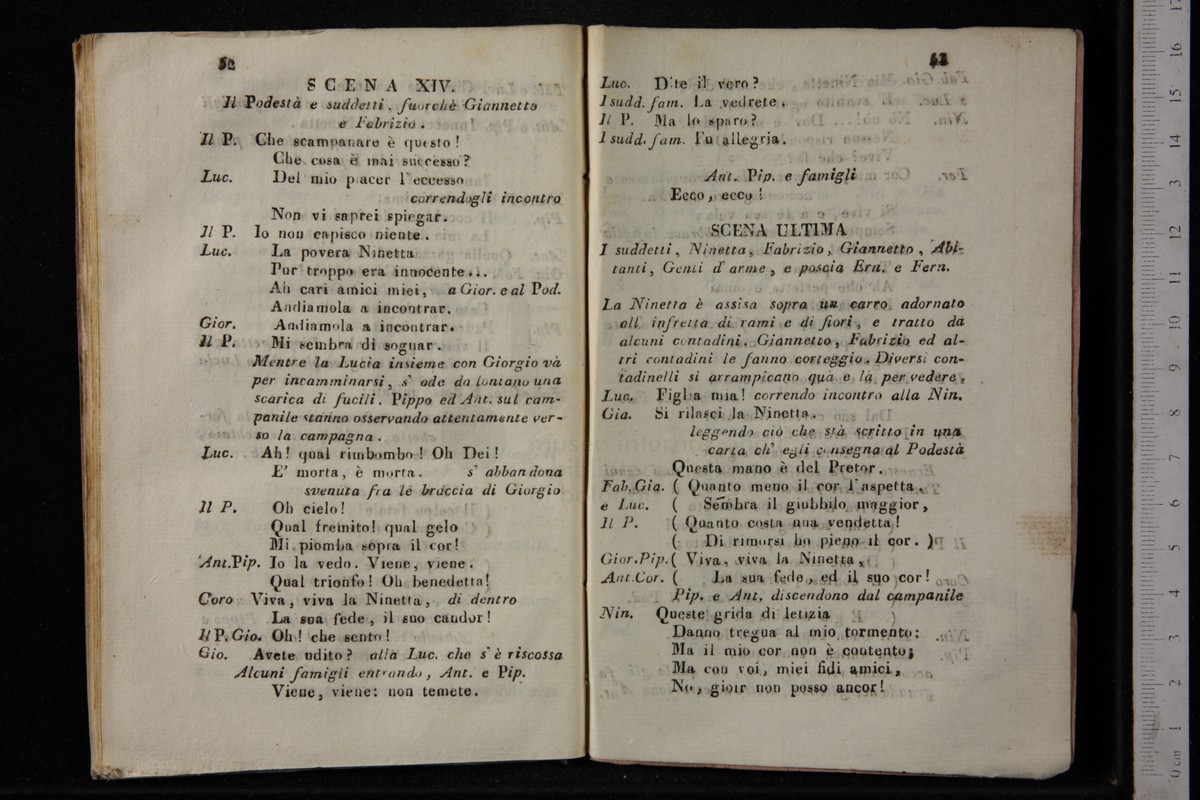 52
SCENA XIV.
Il Podestà e suddetti, fuorchè Giannetto
e Fabrizio.
Il P. Che scampanare è questo!
Che cosa è mai successo?
Luc. Del mio piacer l'eccesso
correndogli incontro
Non vi saprei spiegar.
Il P. Io non capisco niente.
Luc. La povera Ninetta
Pur troppo era innocente...
Ah cari amici miei, a Gior. e al Pod.
Andiamola a incontrar.
Gior. Andiamola a incontrar.
Il P. Mi sembra di sognar.
Mentre la Lucia insieme con Giorgio và
per incamminarsi, s' ode da lontano una
scarica di fucili. Pippo ed Ant. sul cam-
panile stanno osservando attentamente ver-
so la campagna.
Luc. Ah! qual rimbombo! Oh Dei!
E' morta, è morta. s' abbandona
svenuta fra le braccia di Giorgio
Il P. Oh cielo!
Qual fremito! qual gelo
Mi piomba sopra il cor!
Ant.Pip. Io la vedo. Viene, viene.
Qual trionfo! Oh benedetta!
Coro Viva, viva la Ninetta, di dentro
La sua fede, il suo candor!
Il P. Gio. Oh! che sento!
Gio. Avete udito? alla Luc. che s' è riscossa
Alcuni famigli entrando, Ant. e Pip.
Viene, viene: non temete.
Luc. Dite il vero?
I sudd. fam. La vedrete.
Il P. Ma lo sparo?
I sudd. fam. Fu allegria.
Ant. Pip. e famigli
Ecco, ecco!
SCENA ULTIMA
I suddetti, Ninetta, Fabrizio, Giannetto, Abi-
tanti, Genti d' arme, e poscia Ern. e Fern.
La Ninetta è assisa sopra un carro adornato
all' infretta di rami e di fiori, e tratto da
alcuni contadini. Giannetto, Fabrizio ed al-
tri contadini le fanno corteggio. Diversi con-
tadinelli si arrampicano quà e là per vedere.
Luc. Figlia mia! correndo incontro alla Nin.
Gia. Si rilasci la Ninetta.
leggendo ciò che stà scritto in una
carta ch' egli consegna al Podestà
Questa mano è del Pretor.
Fab.Gia. ( Quanto meno il cor l'aspetta,
e Luc. ( Sembra il giubbilo maggior,
Il P. ( Quanto costa una vendetta!
( Di rimorsi ho pieno il cor. )
Gior.Pip. ( Viva, viva la Ninetta,
Ant.Cor. ( La sua fede, ed il suo cor!
Pip. e Ant. discendono dal campanile
Nin. Queste grida di letizia
Danno tregua al mio tormento:
Ma il mio cor non è contento;
Ma con voi, miei fidi amici,
No, gioir non posso ancor!